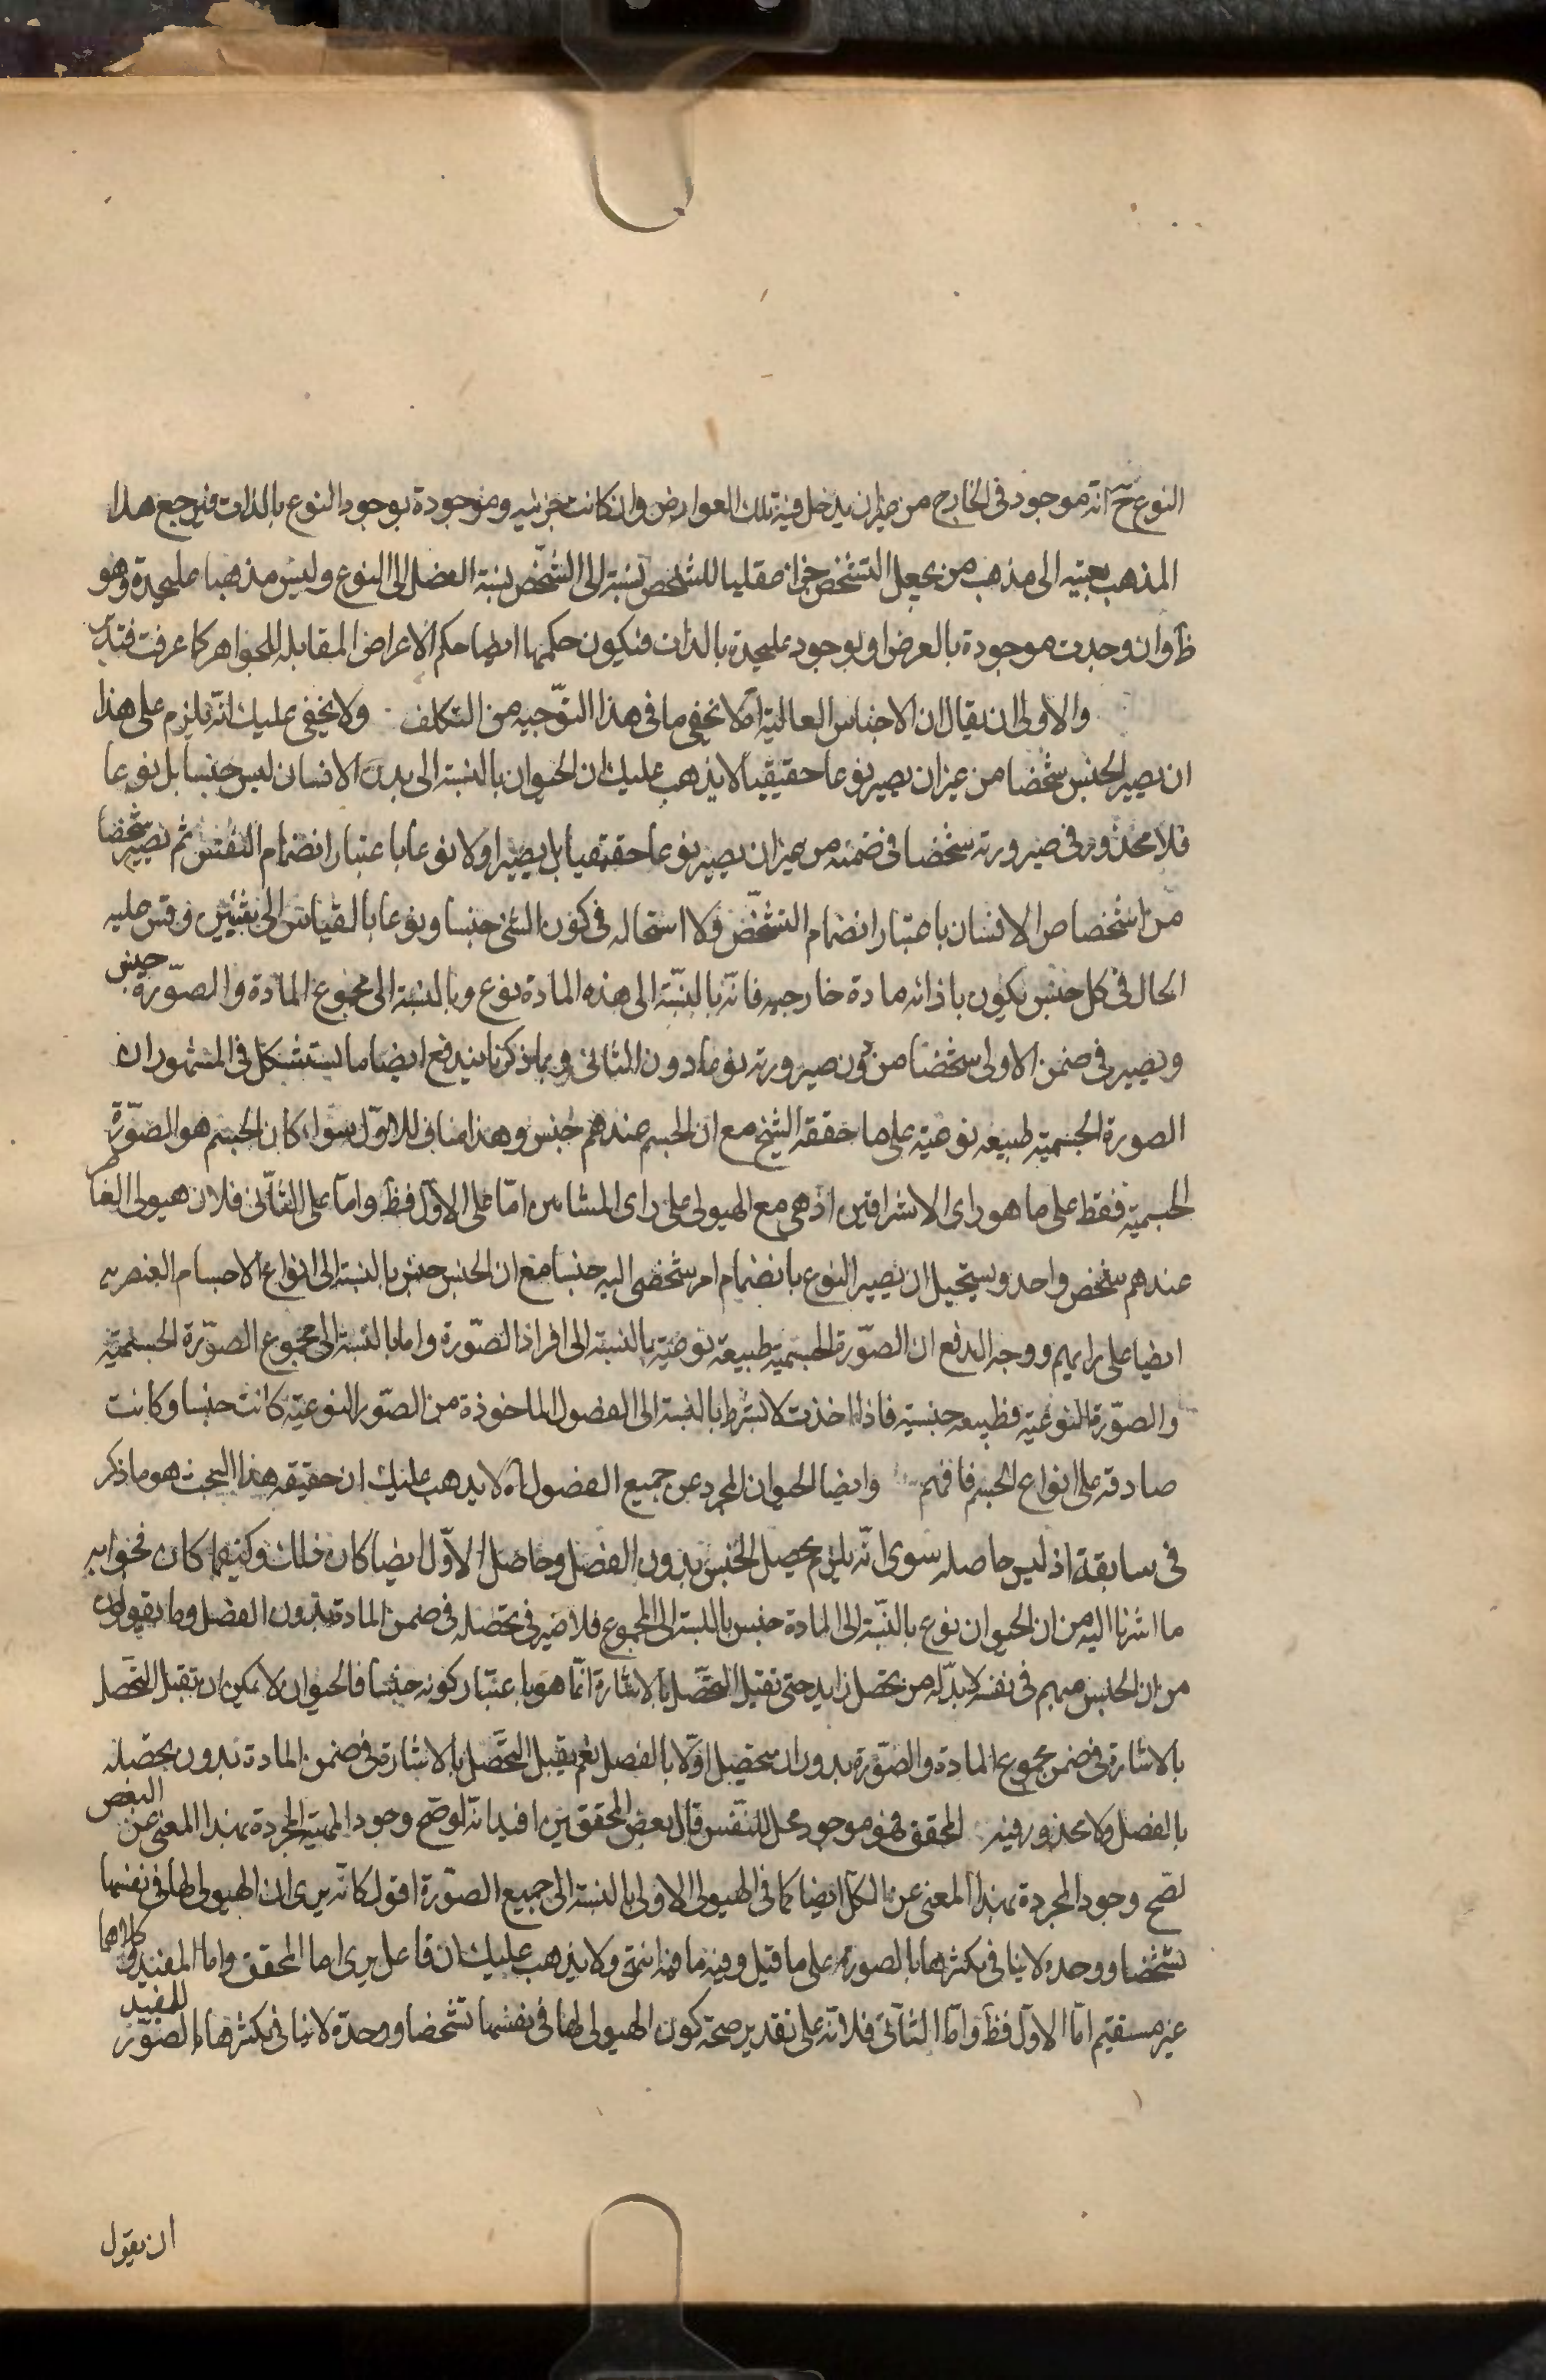 النوع ح انه موجود فى الخارج من غير ان يدخل فيه تلك العوارض وان كانت جزئيه وموجودة بوجود النوع بالذات فيرجع هذا
المذهب بعينه الى مذهب من يجعل التشخص جزا عقليا للشخص نسبته الى الشخص نسبة الفصل الى النوع وليس مذهبا عليحدة وهو
ظ وان وجدت موجودة بالعرض او بوجود عليحدة بالذات فيكون حكمها ايضا حكم الاعراض المقابلة للجواهر كما عرفت فتدبر
والاولى ان يقال ان الاجناس العالية اه لا يخفى ما فى هذا التوجيه من التكلف ولا يخفى عليك انه يلزم على هذا
ان يصير الجنس شخصا من غير ان يصير نوعا حقيقيا لا يذهب عليك ان الحيوان بالنسبة الى بدن الانسان ليس جنسا بل نوعا
فلا محذور فى صيرورته شخصا فى ضمنه من غير ان يصير نوعا حقيقيا بل يصير اولا نوعا باعتبار انضمام النفس ثم يصير شخصا
من اشخاص الانسان باعتبار انضمام التشخص ولا استحاله فى كون الشئ جنسا ونوعا بالقياس الى شيئين وقس عليه
الحال فى كل جنس يكون باذائه مادة خارجيه فانه بالنسبة الى هذه المادة نوع وبالنسبة الى مجموع المادة والصورة جنس
ويصير فى ضمن الاولى شخصا من دون صيرورته نوعا دون الثانى وبما ذكرنا يندفع ايضا ما يستشكل فى المشهور ان
الصورة الجسمية طبيعه نوعية على ما حققه الشيخ مع ان الجسم عندهم جنس وهذا مناف للاول سواء كان الجسم هو الصورة
الجسمية فقط على ما هو راى الاشراقين او هى مع الهيولى على راى المشائين اما على الاول فظ واما على الثانى فلان هيولى العناصر
عندهم شخص واحد ويستحيل ان يصير النوع بانضمام امر شخصى اليه جنسا مع ان الجنس جنس بالنسبة الى انواع الاجسام العنصريه
ايضا على رايهم ووجه الدفع ان الصورة الجسمية طبيعة نوعية بالنسبة الى افراد الصورة واما بالنسبة الى مجموع الصورة الجسمية
والصورة النوعية فطبيعه جنسية فاذا اخذت لا بشرط بالنسبة الى الفصول الماخوذة من الصور النوعية كانت جنسا وكانت
صادقة على انواع الجسم فافهم وايضا الحيوان المجرد عن جميع الفصول اه لا يذهب عليك ان حقيقه هذا البحث هو ما ذكر
فى سابقة اذ ليس حاصله سوى انه يلزم تحصل الجنس بدون الفصل وحاصل الاول ايضا كان ذلك وكيفما كان فجوابه
ما اشرنا اليه من ان الحيوان نوع بالنسبة الى المادة جنس بالنسبة الى المجموع فلا ضير فى تحصله فى ضمن المادة بدون الفصل وما يقولون
من ان الجنس مبهم فى نفسه لا بد له من تحصل زايد حتى تقبل التحصل بالاشارة انما هو باعتبار كونه جنسا فالحيوان لا يمكن ان تقبل التحصل
بالاشارة فى ضمن مجموع المادة والصورة بدون ان يتحصل اولا بالفصل نعم يقبل التحصل بالاشارة فى ضمن المادة بدون تحصله
بالفصل ولا محذور فيه المحقق فهو موجود محل للنفس قال بعض المحققين افيد انه لو صح وجود المهية المجردة بهذا المعنى عن البعض
لصح وجود المجردة بهذا المعنى عن الكل ايضا كما فى الهيولى الاولى بالنسبة الى جميع الصورة اقول كانه يرى ان الهيولى لها فى نفسها
تشخصا ووحدة لا ينافى تكثرها بالصورة على ما قيل وفيه ما فيه انتهى ولا يذهب عليك ان فاعل يرى اما المحقق واما المفيد وكلاهما
غير مستقيم اما الاول فظ واما الثانى فلانه على تقدير صحة كون الهيولى لها فى نفسها تشخصا ووحدة لا ينافى تكثرها بالصور للمفيد
ان يقول